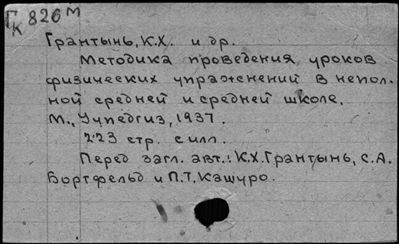 Г 826 м
К
Грантынь, К.Х. и др.
Методика проведения уроков
физических упражнений в непол-
ной средней и средней школе.
М., Учпедгиз, 1937.
223 стр. с илл.
Перед загл. авт.: К.Х. Грантынь, С.А.
Бортфельд и П.Т. Кашуро.